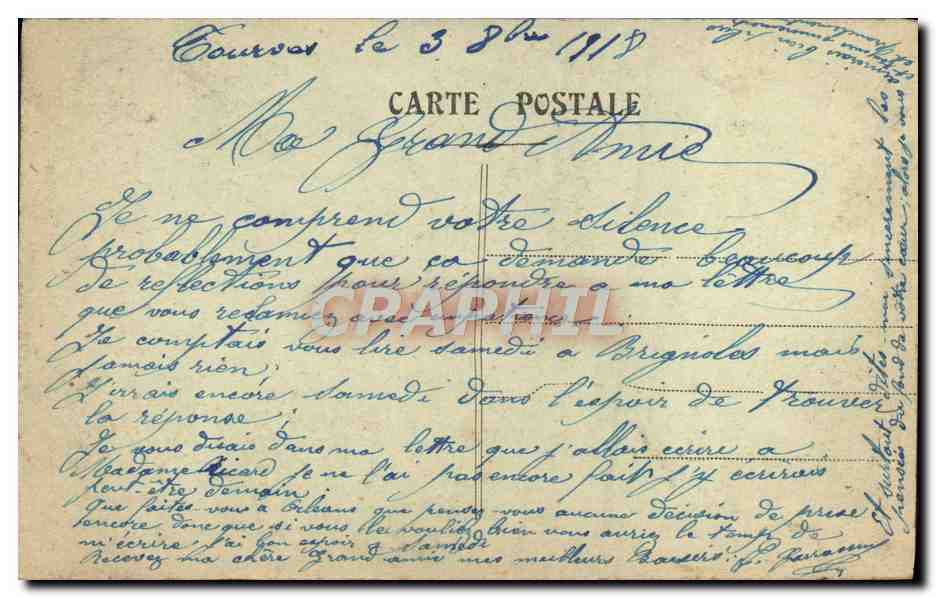 Tourves le 3 8bre 1918
CARTE POSTALE
Ma Grand Amie
Je ne comprend votre silence
probablement que ça demande beaucoup
de reflections pour répondre a ma lettre
que vous reclamiez avec impatience.
Je comptais vous lire samedi a Brignoles mais
jamais rien.
J'irrais encore samedi dans l'espoir de trouver
la réponse;
Je vous disais dans ma lettre que j'allais écrire a
Madame Ricard je ne l'ai pas encore fait j'y ecrirais
peut-être demain.
Que faites-vous a Orléans que pensez vous aucune décision de prise
encore donc que si vous le vouliez bien vous auriez le temps de
m'écrire j'ai bon espoir Samedi
Recevez ma chère Grand amie mes meilleurs Baisers.
Et surtout dites-moi sincerement les
pensées du fond de votre cœur, alors je vous
aimerais bien plus
et
CPAPHIL